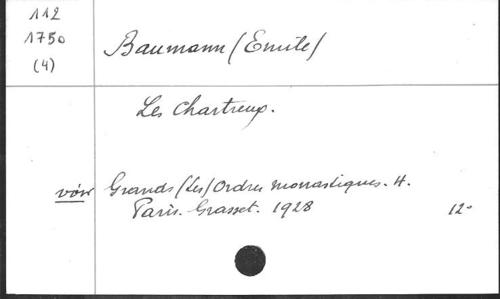 112
1750
(4)
Baumann (Emile)
Les Chartreux.
voir Grands (Les) Ordres monastiques. 4.
Paris. Grasset. 1928 12°